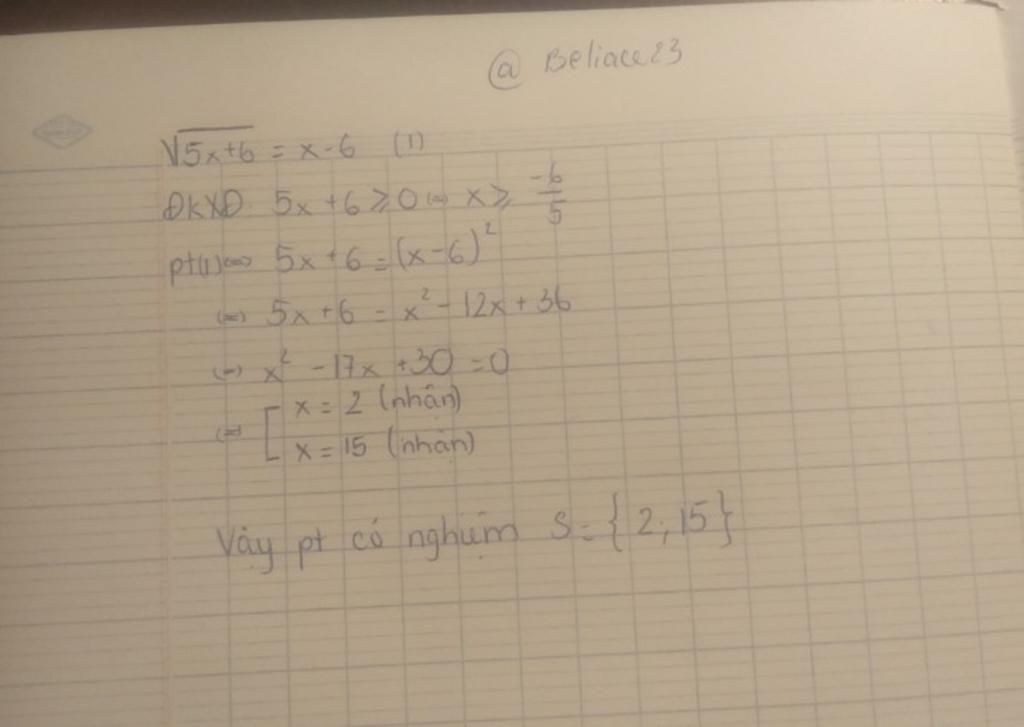 @ Beliace23
√5x+6 = x-6 (1)
ĐKXĐ 5x+6 ≥ 0 (=) x ≥ -6/5
pt(1) (=) 5x+6 = (x-6)²
(=) 5x+6 = x² - 12x + 36
(=) x² - 17x + 30 = 0
(=) [ x = 2 (nhận)
x = 15 (nhận)
Vậy pt có nghiệm S = {2; 15}